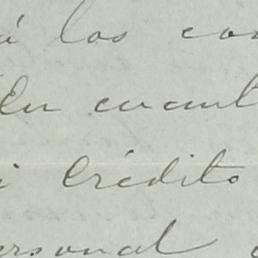 á los con
En cuant
i crédito
ersonal